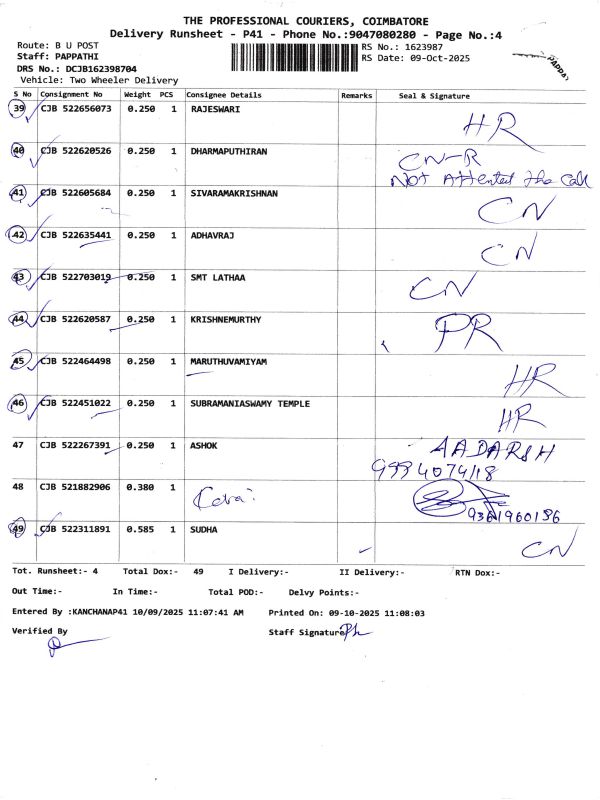 THE PROFESSIONAL COURIERS, COIMBATORE
Delivery Runsheet - P41 - Phone No.:9047080280 - Page No.:4
Route: B U POST
RS No.: 1623987
Staff: PAPPATHI
RS Date: 09-Oct-2025
DRS No.: DCJB162398704
Vehicle: Two Wheeler Delivery
S No Consignment No Weight PCS Consignee Details Remarks Seal & Signature
39 CJB 522656073 0.250 1 RAJESWARI HR
40 CJB 522620526 0.250 1 DHARMAPUTHIRAN CN-R
Not Attented the Call
41 CJB 522605684 0.250 1 SIVARAMAKRISHNAN CN
42 CJB 522635441 0.250 1 ADHAVRAJ CN
43 CJB 522703019 0.250 1 SMT LATHAA CN
44 CJB 522620587 0.250 1 KRISHNEMURTHY PR
45 CJB 522464498 0.250 1 MARUTHUVAMIYAM HR
46 CJB 522451022 0.250 1 SUBRAMANIASWAMY TEMPLE HR
47 CJB 522267391 0.250 1 ASHOK AADARSH
9994074118
48 CJB 521882906 0.380 1
9361960186
49 CJB 522311891 0.585 1 SUDHA CN
Tot. Runsheet:- 4 Total Dox:- 49 I Delivery:- II Delivery:- RTN Dox:-
Out Time:- In Time:- Total POD:- Delvy Points:-
Entered By :KANCHANAP41 10/09/2025 11:07:41 AM Printed On: 09-10-2025 11:08:03
Verified By Staff Signature